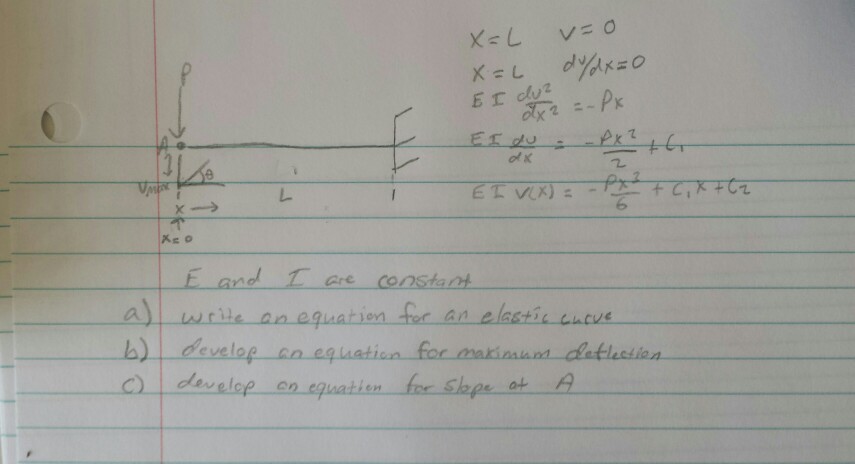 x=L v=0
x=L dv/dx=0
EI dv²/dx² = -Px
EI dv/dx = -Px²/2 + C₁
EI v(x) = -Px³/6 + C₁x + C₂
P
A
θ
Vmax
L
x →
x=0
E and I are constant
a) write an equation for an elastic curve
b) develop an equation for maximum deflection
c) develop an equation for slope at A